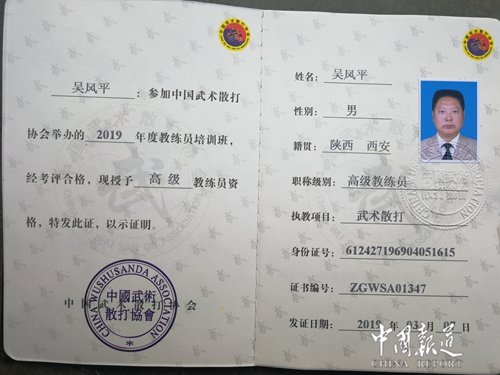 吴风平：参加中国武术散打
协会举办的 2019 年度教练员培训班，
经考评合格，现授予 高级 教练员资
格，特发此证，以示证明。
中国武术散打协会
CHINA WUSHUSANDA ASSOCATION
中國武術
散打協會
姓名：吴风平
性别：男
籍贯：陕西 西安
职称级别：高级教练员
执教项目：武术散打
身份证号：612427196904051615
证书编号：ZGWSA01347
发证日期：2019 年 03 月 07 日
中国报道
CHINA REPORT